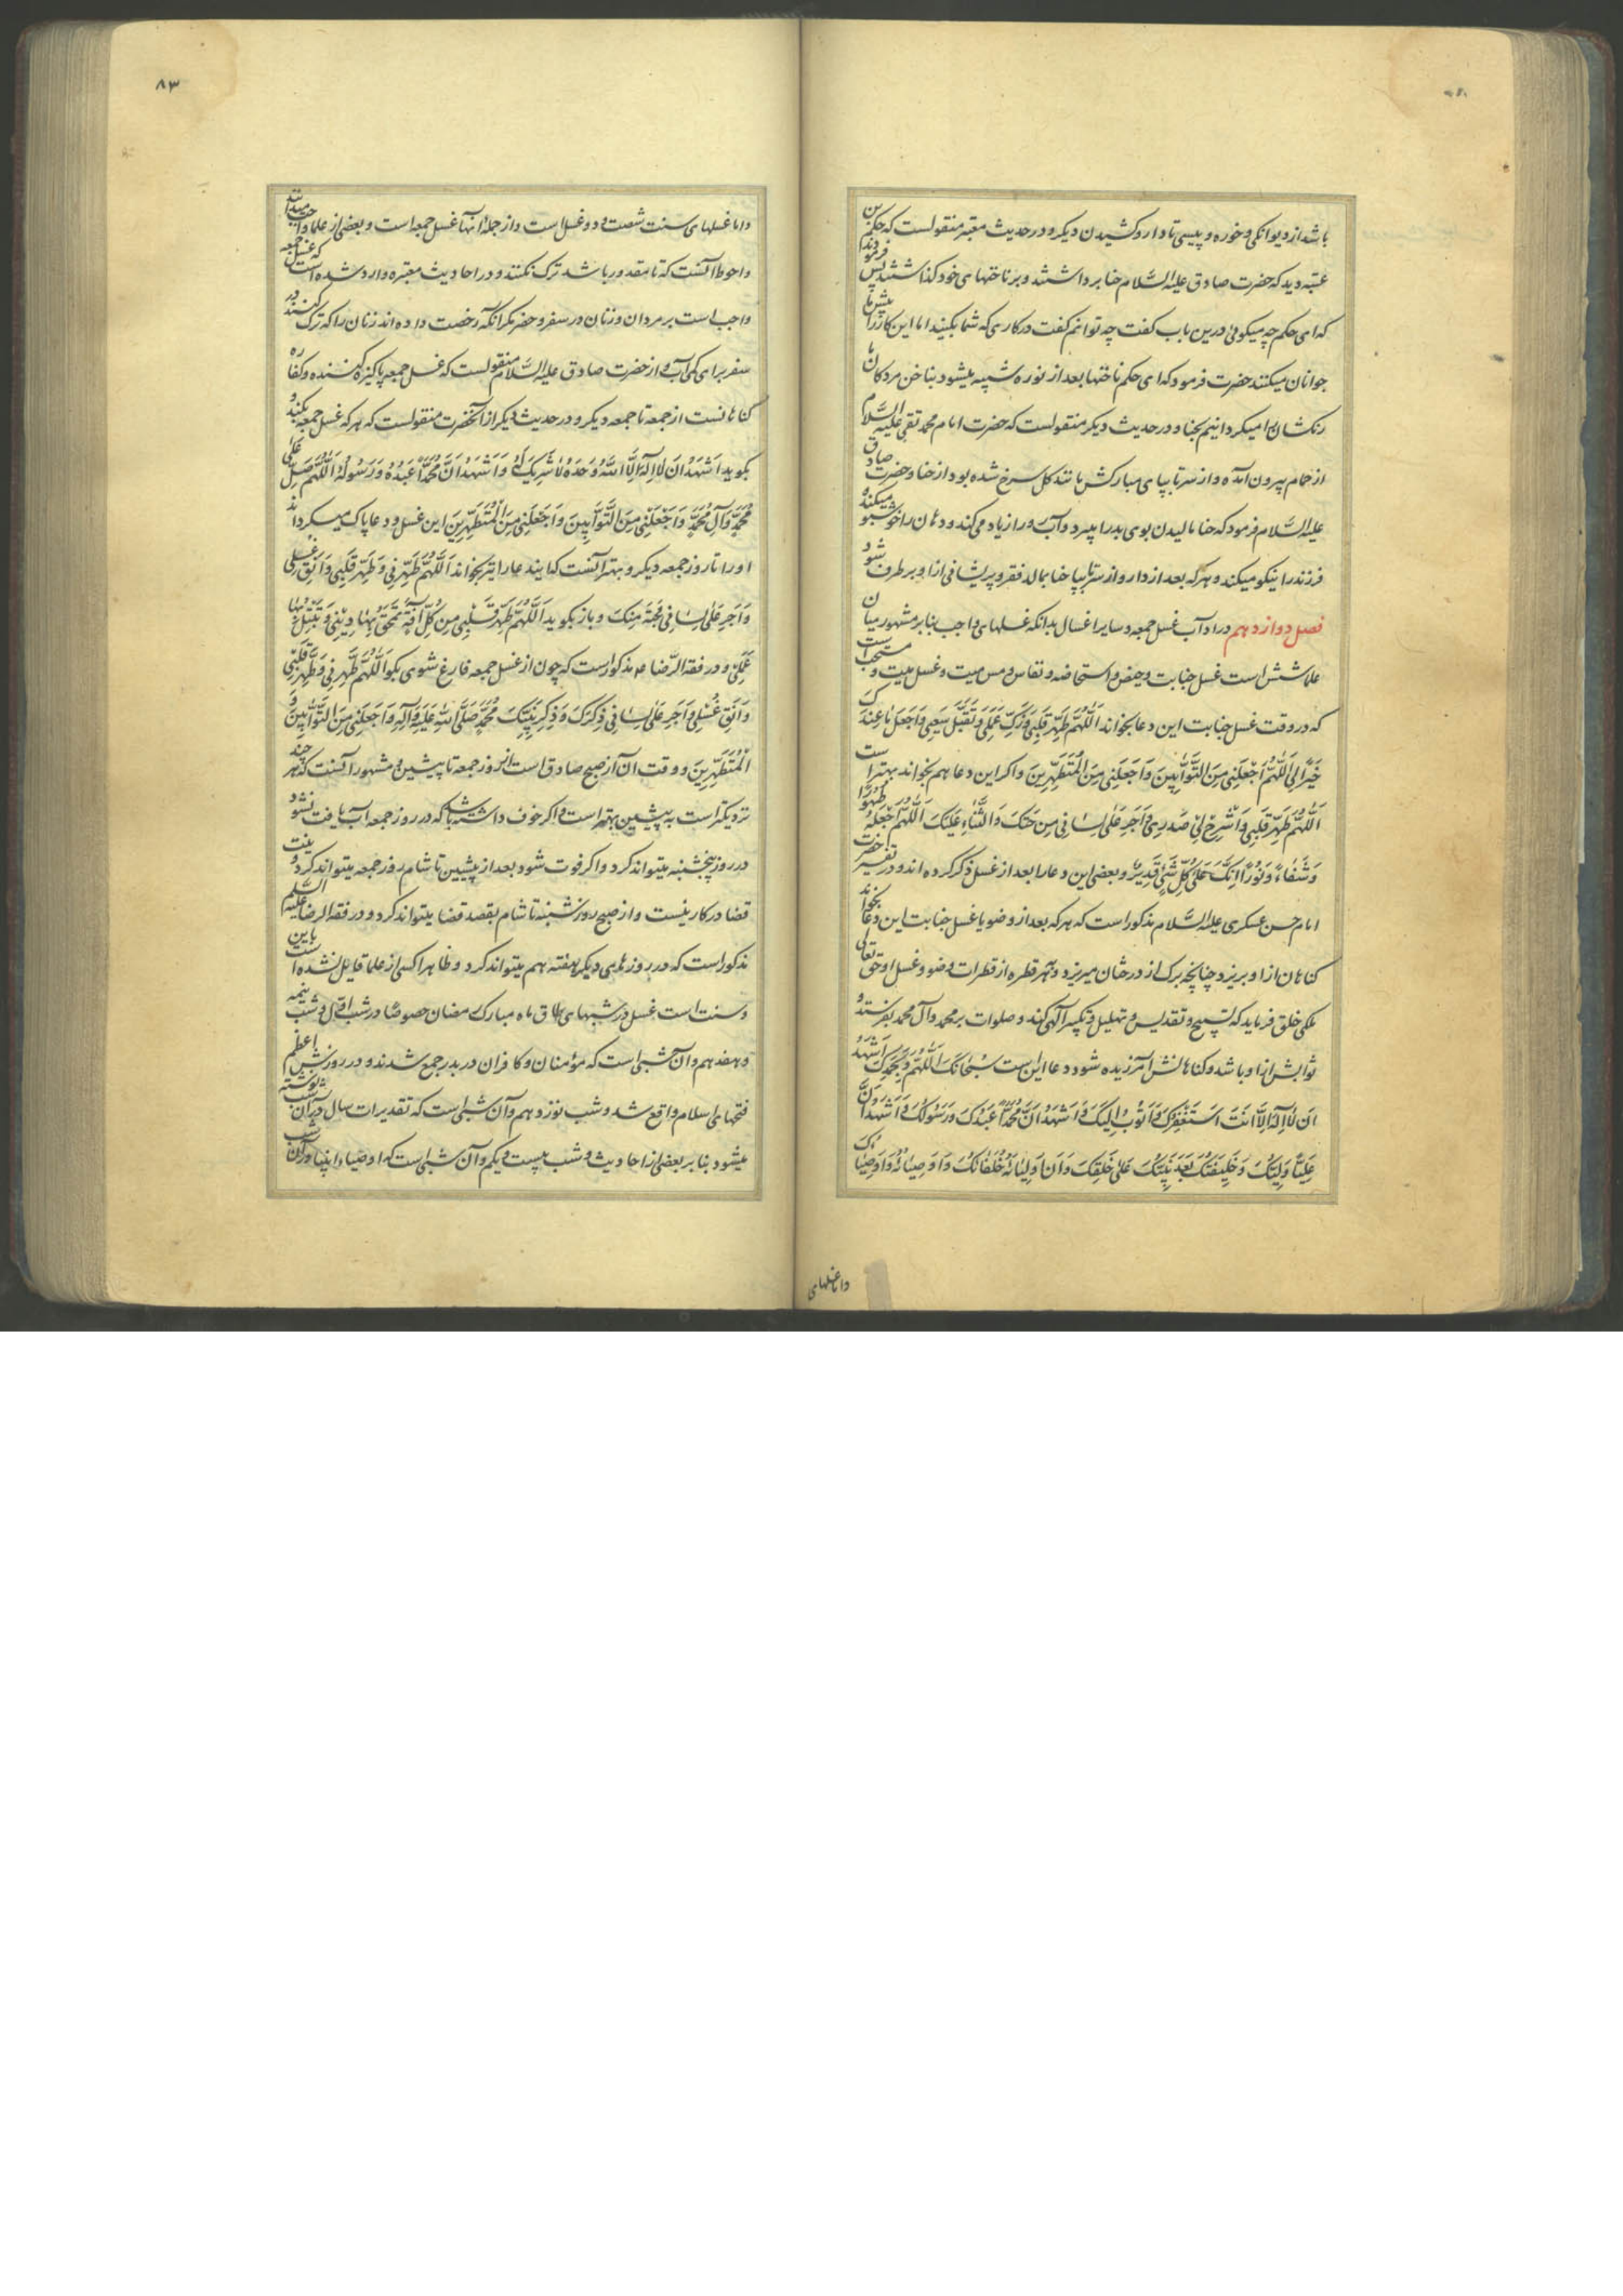 باشد از دیوانکی و خوره و پیسی تا دارو کشیدن دیکر و در حدیث معتبر منقولست که حکم بن
عتبه دید که حضرت صادق علیه السَّلام حنا برداشتند و بر ناخنهای خود کذاشتند پس فرمودند
که ای حکم چه میکوئی درین باب کفت چه توانم کفت در کاری که شما بکنید اما این کار را پیش ما
جوانان میکنند حضرت فرمود که ای حکم ناخنها بعد از نوره شبیه میشود بناخن مردکان ما
رنکشان را میکردانیم بحنا و در حدیث دیکر منقولست که حضرت امام محمد تقی علیه السَّلام
از حمام بیرون آمده و از سر تا بپای مبارکش مانند کل سرخ شده بود از حنا و حضرت صادق
علیه السَّلام فرمود که حنا مالیدن بوی بد را میبرد و آب رو را زیاد می کند و دهان را خوشبو میکند و
فرزند را نیکو میکند و هرکه بعد از دارو از سر تا بپا حنا بمالد فقر و پریشانی از او برطرف شود
فصل دوازدهم در اداب غسل جمعه و سایر اغسال بدانکه غسلهای واجب بنابر مشهور میان
علما شش است غسل جنابت و حیض و استحاضه و نفاس و مس میت و غسل میت و مستحب است
که در وقت غسل جنابت این دعا بخواند اَللّهُمَّ طَهِّر قَلبِی وَ زَکِّ عَمَلِی وَ تَقَبَّل سَعیِی وَ اجعَل ما عِندَکَ
خَیراً لِی اَللّهُمَّ اجعَلنِی مِنَ التَّوّابِینَ وَ اجعَلنِی مِنَ المُتَطَهِّرِینَ و اکر این دعا هم بخواند بهتر است
اَللّهُمَّ طَهِّر قَلبِی وَ اشرَح لِی صَدرِی وَ اَجرِ عَلی لِسانِی مِدحَتَکَ وَ الثَّناءِ عَلَیکَ اَللّهُمَّ اجعَلهُ طَهُورًا
وَ شَفاءً وَ نُورًا اِنَّکَ عَلی کُلِّ شَیءٍ قَدِیرٌ و بعضی این دعا را بعد از غسل ذکر کرده اند و در تفسیر حضرت
امام حسن عسکری علیه السَّلام مذکور است که هرکه بعد از وضو یا غسل جنابت این دعا بخواند
کناهان از او بریزد چنانچه برک از درختان میریزد و بهر قطره از قطرات وضو و غسل او حق تعالی
ملکی خلق فرماید که تسبیح و تقدیس و تهلیل و تکبیر آلهی کند و صلوات بر محمد و آل محمد بفرستد و
ثوابش از او باشد و کناهانش آمرزیده شود دعا این ست سُبحانَکَ اَللّهُمَّ وَ بِحَمدِکَ اَشهَدُ
اَن لا اِلهَ اِلّا اَنتَ اَستَغفِرُکَ وَ اَتُوبُ اِلَیکَ وَ اَشهَدُ اَنَّ مُحَمَّدًا عَبدُکَ وَ رَسُولُکَ وَ اَشهَدُ اَنَّ
عَلِیًّا وَلِیُّکَ وَ خَلِیفَتُکَ بَعدَ نَبِیِّکَ عَلی خَلقِکَ وَ اَنَّ اَولِیائَهُ خُلَفائُکَ وَ اَوصِیائَهُ اَوصِیاؤُکَ
واما غسلهای
٨٣
واما غسلهای سنت شصت و دو غسل است و از جمله انها غسل جمعه است و بعضی از علما واجب میدانند
و احوط آنست که تا مقدور باشد ترک نکنند و در احادیث معتبره وارد شده است که غسل جمعه
واجب است بر مردان و زنان در سفر و حضر مکر انکه رخصت داده اند زنان را که ترک کنند در
سفر برای کمی آب و از حضرت صادق علیه السَّلام منقولست که غسل جمعه پاکیزه کننده و کفاره
کناهانست از جمعه تا جمعه دیکر و در حدیث دیکر از آنحضرت منقولست که هرکه غسل جمعه بکند و
بکوید اَشهَدُ اَن لا اِلهَ اِلَّا اللهُ وَحدَهُ لا شَرِیکَ لَهُ وَ اَشهَدُ اَنَّ مُحَمَّدًا عَبدُهُ وَ رَسُولُهُ اَللّهُمَّ صَلِّ عَلی
مُحَمَّدٍ وَ آلِ مُحَمَّدٍ وَ اجعَلنِی مِنَ التَّوّابِینَ وَ اجعَلنِی مِنَ المُتَطَهِّرِینَ این غسل و دعا پاک میکرداند
او را تا روز جمعه دیکر و بهتر آنست که ایندعا را نیز بخواند اَللّهُمَّ طَهِّرنِی وَ طَهِّر قَلبِی وَ اَنقِ غُسلِی
وَ اَجرِ عَلی لِسانِی مَحَبَّةً مِنکَ و باز بکوید اَللّهُمَّ طَهِّر قَلبِی مِن کُلِّ آفَةٍ تَمحَقُ بِها دِینِی وَ تُبطِلُ بِها
عَمَلِی و در فقه الرّضا ع مذکور است که چون از غسل جمعه فارغ شوی بکو اَللّهُمَّ طَهِّرنِی وَ طَهِّر قَلبِی
وَ اَنقِ غُسلِی وَ اَجرِ عَلی لِسانِی ذِکرَکَ وَ ذِکرِ نَبِیِّکَ مُحَمَّدٍ صَلَّی اللهُ عَلَیهِ وَ آلِهِ وَ اجعَلنِی مِنَ التَّوّابِینَ وَ
المُتَطَهِّرِینَ و وقت ان از صبح صادق است از روز جمعه تا پیشین و مشهور آنست که هر چند
نزدیکتر است به پیشین بهتر است و اکر خوف داشته باشد که در روز جمعه آب یافت نشود
در روز پنجشنبه میتواند کرد و اکر فوت شود بعد از پیشین تا شام روز جمعه میتواند کرد و نیت
قضا در کار نیست و از صبح روز شنبه تا شام بقصد قضا میتواند کرد و در فقه الرضا علیه السلم
مذکور است که در روزهای دیکر هفته هم میتواند کرد و ظاهرا کسی از علما قایل نشده است باین
و سنت است غسل در شبهای طاق ماه مبارک رمضان خصوصًا در شب اوّل و شب نیمه
و هفدهم و آن شبی است که مؤمنان و کافران در بدر جمع شدند و در روزش اعظم
فتحهای اسلام واقع شد و شب نوزدهم و آن شبی است که تقدیرات سال در آن شب نوشته
میشود بنابر بعضی از احادیث و شب بیست و یکم و آن شبی است که اوصیاء انبیا در آن شب